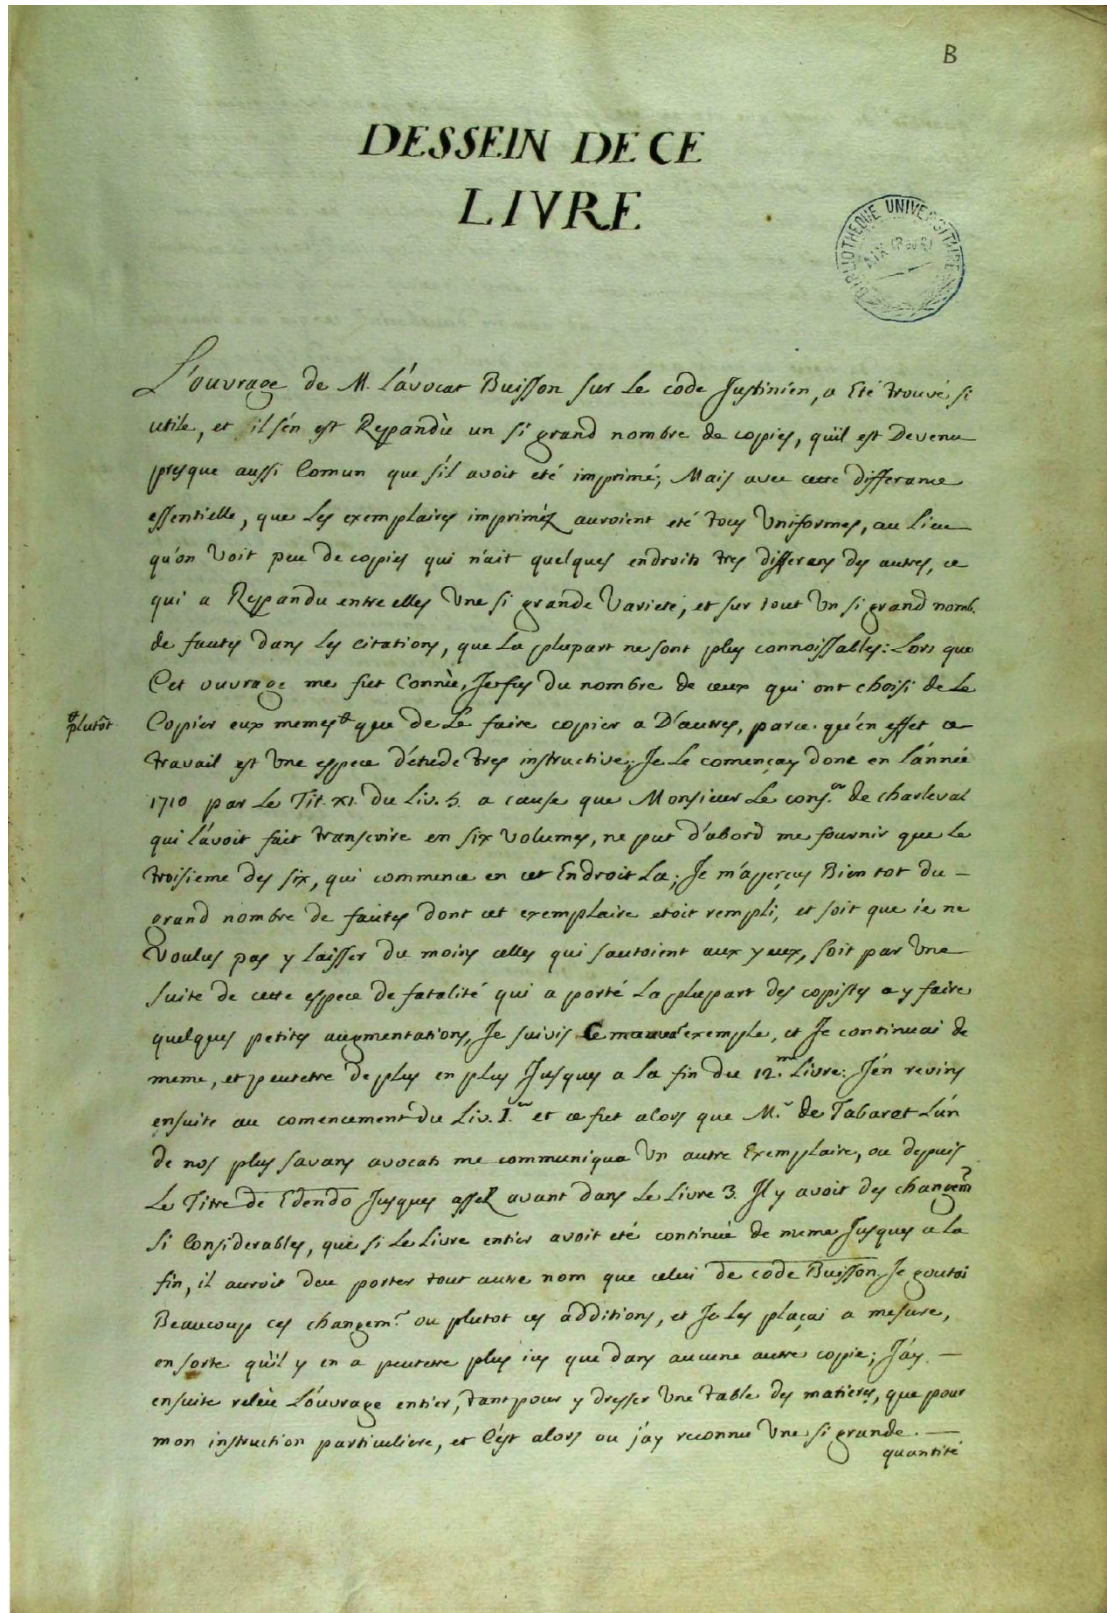 B
DESSEIN DE CE
LIVRE
BIBLIOTHEQUE UNIVERSITAIRE
AIX
L'ouvrage de M. l'avocat Buisson sur Le code Justinien, a Eté trouvé si
utile, et il s'en est Repandû un si grand nombre de copies, qu'il est Devenu
presque aussi Comun que s'il avoit eté imprimé; Mais avec cette differance
essentielle, que Les exemplaires impriméz auroient eté tous Uniformes, au Lieu
qu'on Voit peu de copies qui n'ait quelques endroits tres differens des autres, ce
qui a Repandu entre elles Une si grande Varieté, et sur tout Un si grand nomb.
de fautes dans Les citations, que La plupart ne sont plus connoissables: Lors que
Cet ouvrage me fut Connû, Je fus du nombre de ceux qui ont choisi de Le
Copier eux memes # que de Le faire copier a D'autres, parce qu'en effet ce
# plutôt
travail est Une espece d'étude tres instructive; Je Le començay donc en L'année
1710 par Le Tit. XI. du Liv. 5. a cause que Monsieur Le cons.er de charleval
qui L'avoit fait transcrire en six Volumes, ne put d'abord me fournir que Le
troisieme des six, qui commence en cet Endroit La; Je m'aperçus Bien tot du –
grand nombre de fautes dont cet exemplaire etoit rempli, et soit que ie ne
Voulus pas y Laisser du moins celles qui sautoient aux yeux, soit par Une
suite de cette espece de fatalité qui a porté La plupart des copistes a y faire
quelques petites augmentations, Je suivis Ce mauv.s exemple, et Je continuai de
meme, et peutetre de plus en plus Jusques a la fin du 12.me Livre: J'en revins
ensuite au comencement du Liv. I.er et ce fut alors que M.r de Tabaret L'un
de nos plus savans avocats me communiqua Un autre Exemplaire, ou depuis
Le Titre de Edendo Jusques assez avant dans Le Livre 3. Il y avoit des changem.s
si Considerables, que si Le Livre entier avoit eté continué de meme Jusques a la
fin, il auroit deu porter tout autre nom que celui de code Buisson, Je goutai
Beaucoup ces changem.s ou plutot ces additions, et Je Les plaçai a mesure,
en sorte qu'il y en a peutetre plus icy que dans aucune autre copie; J'ay –
ensuite releü L'ouvrage entier, tant pour y dresser Une table des matieres, que pour
mon instruction particuliere, et C'est alors ou j'ay reconnu Une si grande –
quantité